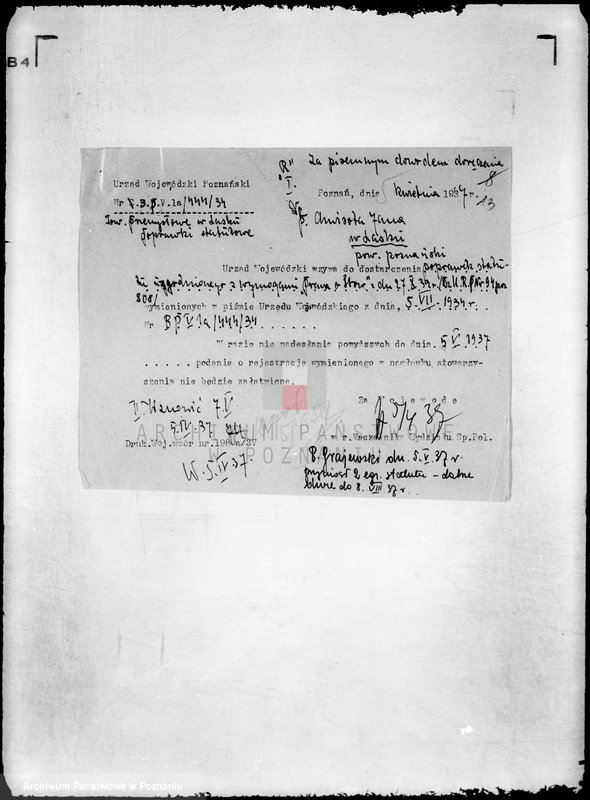 B4
"R" Za piśmennym dowodem doręczenia
I.
8
13
Urząd Wojewódzki Poznański
Nr P.B.p.V.1a/444/34
Tow. Przemysłowe w Łasku
poprawki statutowe
Poznań, dnia 5 kwietnia 1937 r.
Jana
w Łasku
pow. poznański
Urząd Wojewódzki wzywa do dostarczenia poprawek statu-
tu uzgodnionego z wymogami "Prawa o Stow" z dn 27.X.32 r. /Dz.U.R.P. Nr 94 poz
808/
wymienionych w piśmie Urzędu Wojewódzkiego z dnia, 5.VII.1934 r.
Nr BP.V.1a/444/34 . . . . . .
W razie nie nadesłania powyższych do dnia. 5.V.1937
. . . . . podanie o rejestrację wymienionego w nagłówku stowarzy-
szenia nie będzie załatwione.
Za Wojewodę
II Wznowić 7.V
5.IV.37
Druk.Woj.wzór nr.1980a/37
W. 5.IV.37
w z. Naczelnika Wydziału Sp.Pol.
P. Grajewski dn. 5.V.37 r.
przyniósł 2 egz. statutu - dalsze
biurze do 8.VIII.37 r.
ARCHIWUM PAŃSTWOWE
W POZNANIU
Archiwum Państwowe w Poznaniu